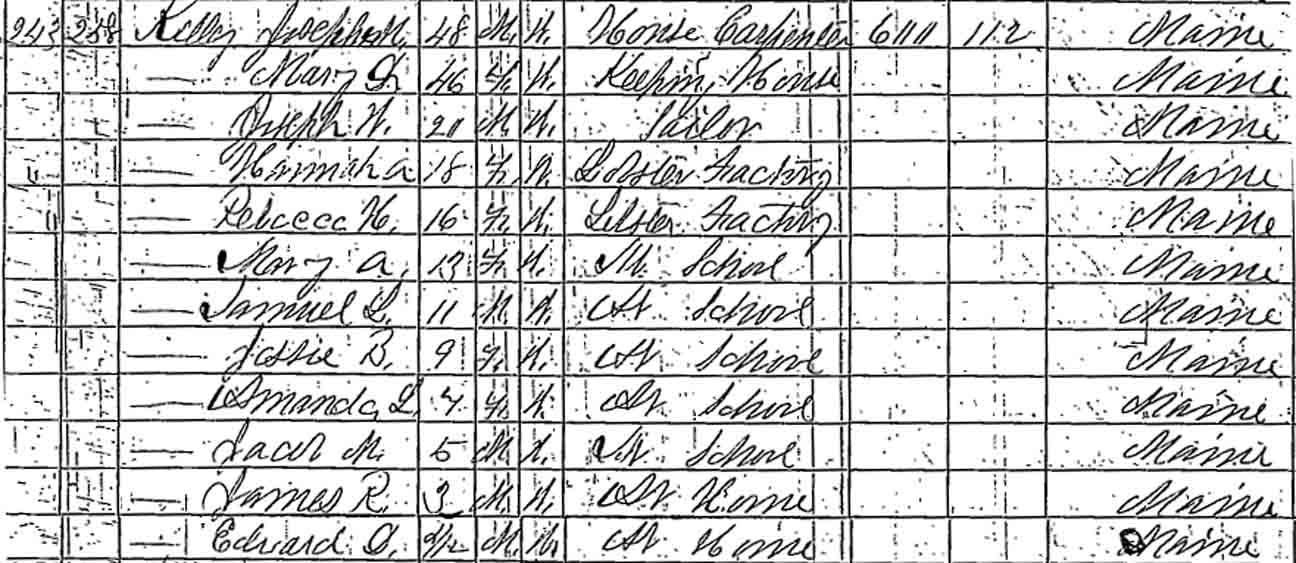 243 258 Kelley Joseph M. 48 M. W. House Carpenter 600 112 Maine
— Mary D. 46 F. W. Keeping House Maine
— Joseph W. 20 M. W. Sailor Maine
— Hannah A 18 F. W. Lobster Factory Maine
— Rebecca H. 16 F. W. Lobster Factory Maine
— Mary A. 13 F. W. At School Maine
— Samuel L. 11 M. W. At School Maine
— Jessie B. 9 F. W. At School Maine
— Amanda L. 7 F. W. At School Maine
— Jacob M. 5 M. W. At School Maine
— James R. 3 M. W. At Home Maine
— Edward D. M. W. At Home Maine